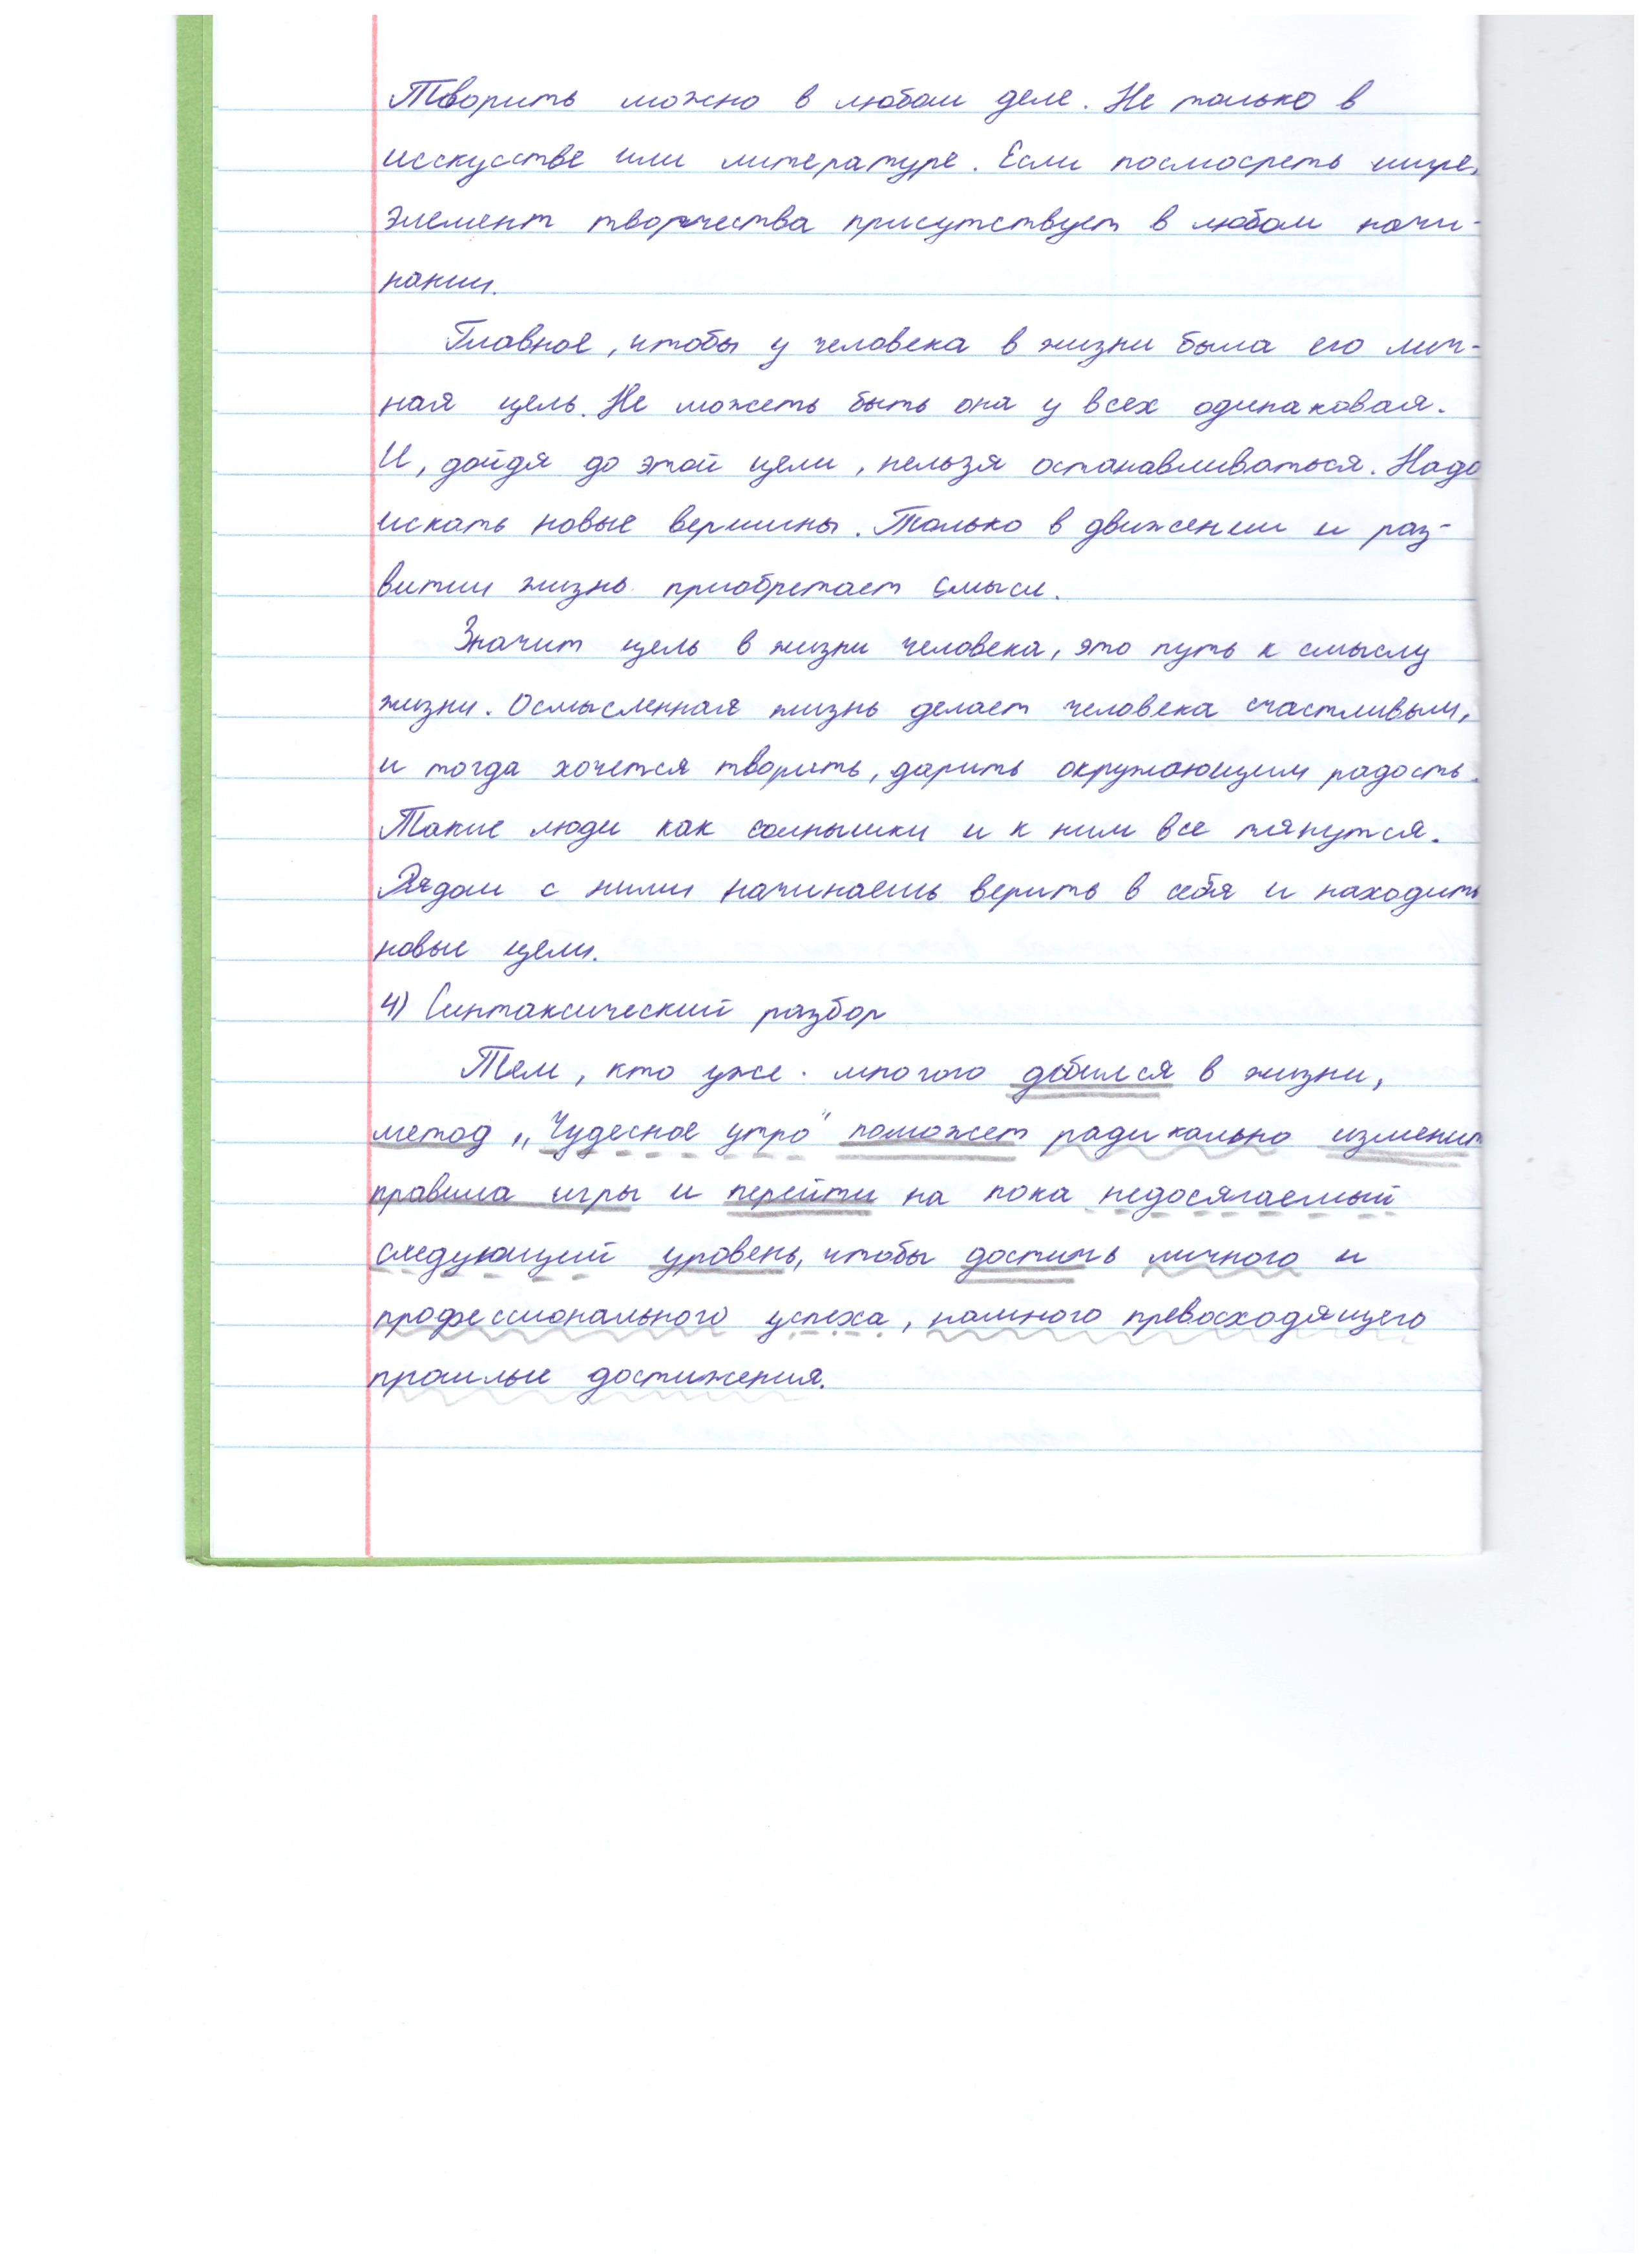 Творить можно в любом деле. Не только в
исскусстве или литературе. Если посмосреть шире,
элемент творчества присутствует в любом начи-
нании.
Главное, чтобы у человека в жизни была его лич-
ная цель. Не можеть быть она у всех одинаковая.
И, дойдя до этой цели, нельзя останавливаться. Надо
искать новые вершины. Только в движении и раз-
витии жизнь приобретает смысл.
Значит цель в жизни человека, это путь к смыслу
жизни. Осмысленная жизнь делает человека счастливым,
и тогда хочется творить, дарить окружающим радость.
Такие люди как солнышки и к ним все тянутся.
Рядом с ними начинаешь верить в себя и находить
новые цели.
4) Синтаксический разбор
Тем, кто уже многого добился в жизни,
метод „Чудесное утро" поможет радикально изменит
правила игры и перейти на пока недосягаемый
следующий уровень, чтобы достичь личного и
профессионального успеха, намного превосходящего
прошлые достижения.